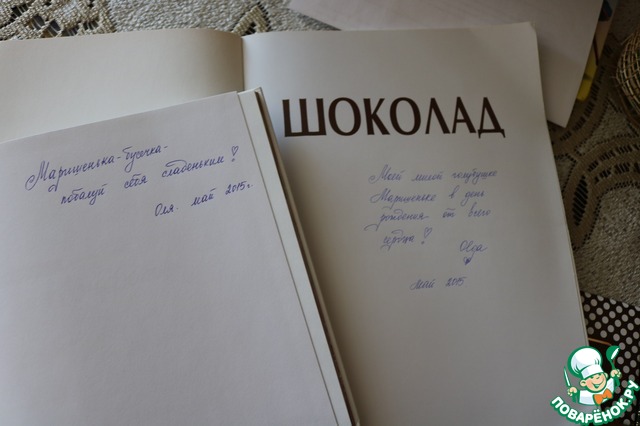 Маришенька-бусечка-
побалуй себя сладеньким!
Оля. май 2015г.
ШОКОЛАД
Моей милой голубушке
Маришеньке в день
рождения от всего
сердца!
Olga
май 2015
ПОВАРЁНОК.РУ